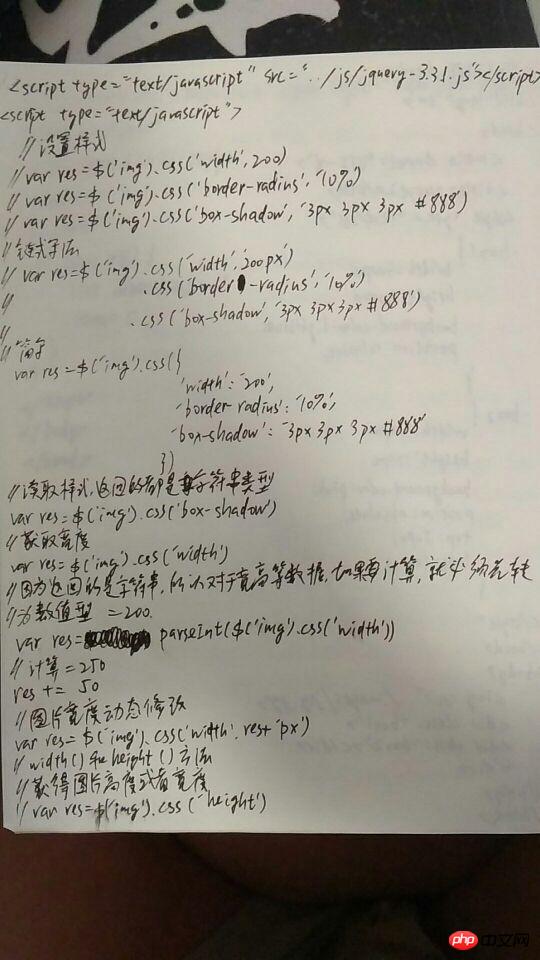 <script type="text/javascript" src="../js/jquery-3.3.1.js"></script>
<script type="text/javascript">
//设置样式
// var res=$('img').css('width',200)
// var res=$('img').css('border-radius','10%')
// var res=$('img').css('box-shadow','3px 3px 3px #888')
//链式写法
// var res=$('img').css('width','200px')
// .css('border-radius','10%')
.css('box-shadow','3px 3px 3px #888')
//
//简写
var res=$('img').css({
'width':'200',
'border-radius':'10%',
'box-shadow':'3px 3px 3px #888'
})
//读取样式,返回的都是字符串类型
var res=$('img').css('box-shadow')
//获取宽度
var res=$('img').css('width')
//因为返回的是字符串,所以对于宽高等数据,如果要计算,就必须先转
//为数值型 =200.
var res= parseInt($('img').css('width'))
//计算=250
res += 50
//图片宽度动态修改
var res=$('img').css('width',res+'px')
// width()和height()方法
//获得图片高度或者宽度
// var res=$('img').css('height')
php 中文网